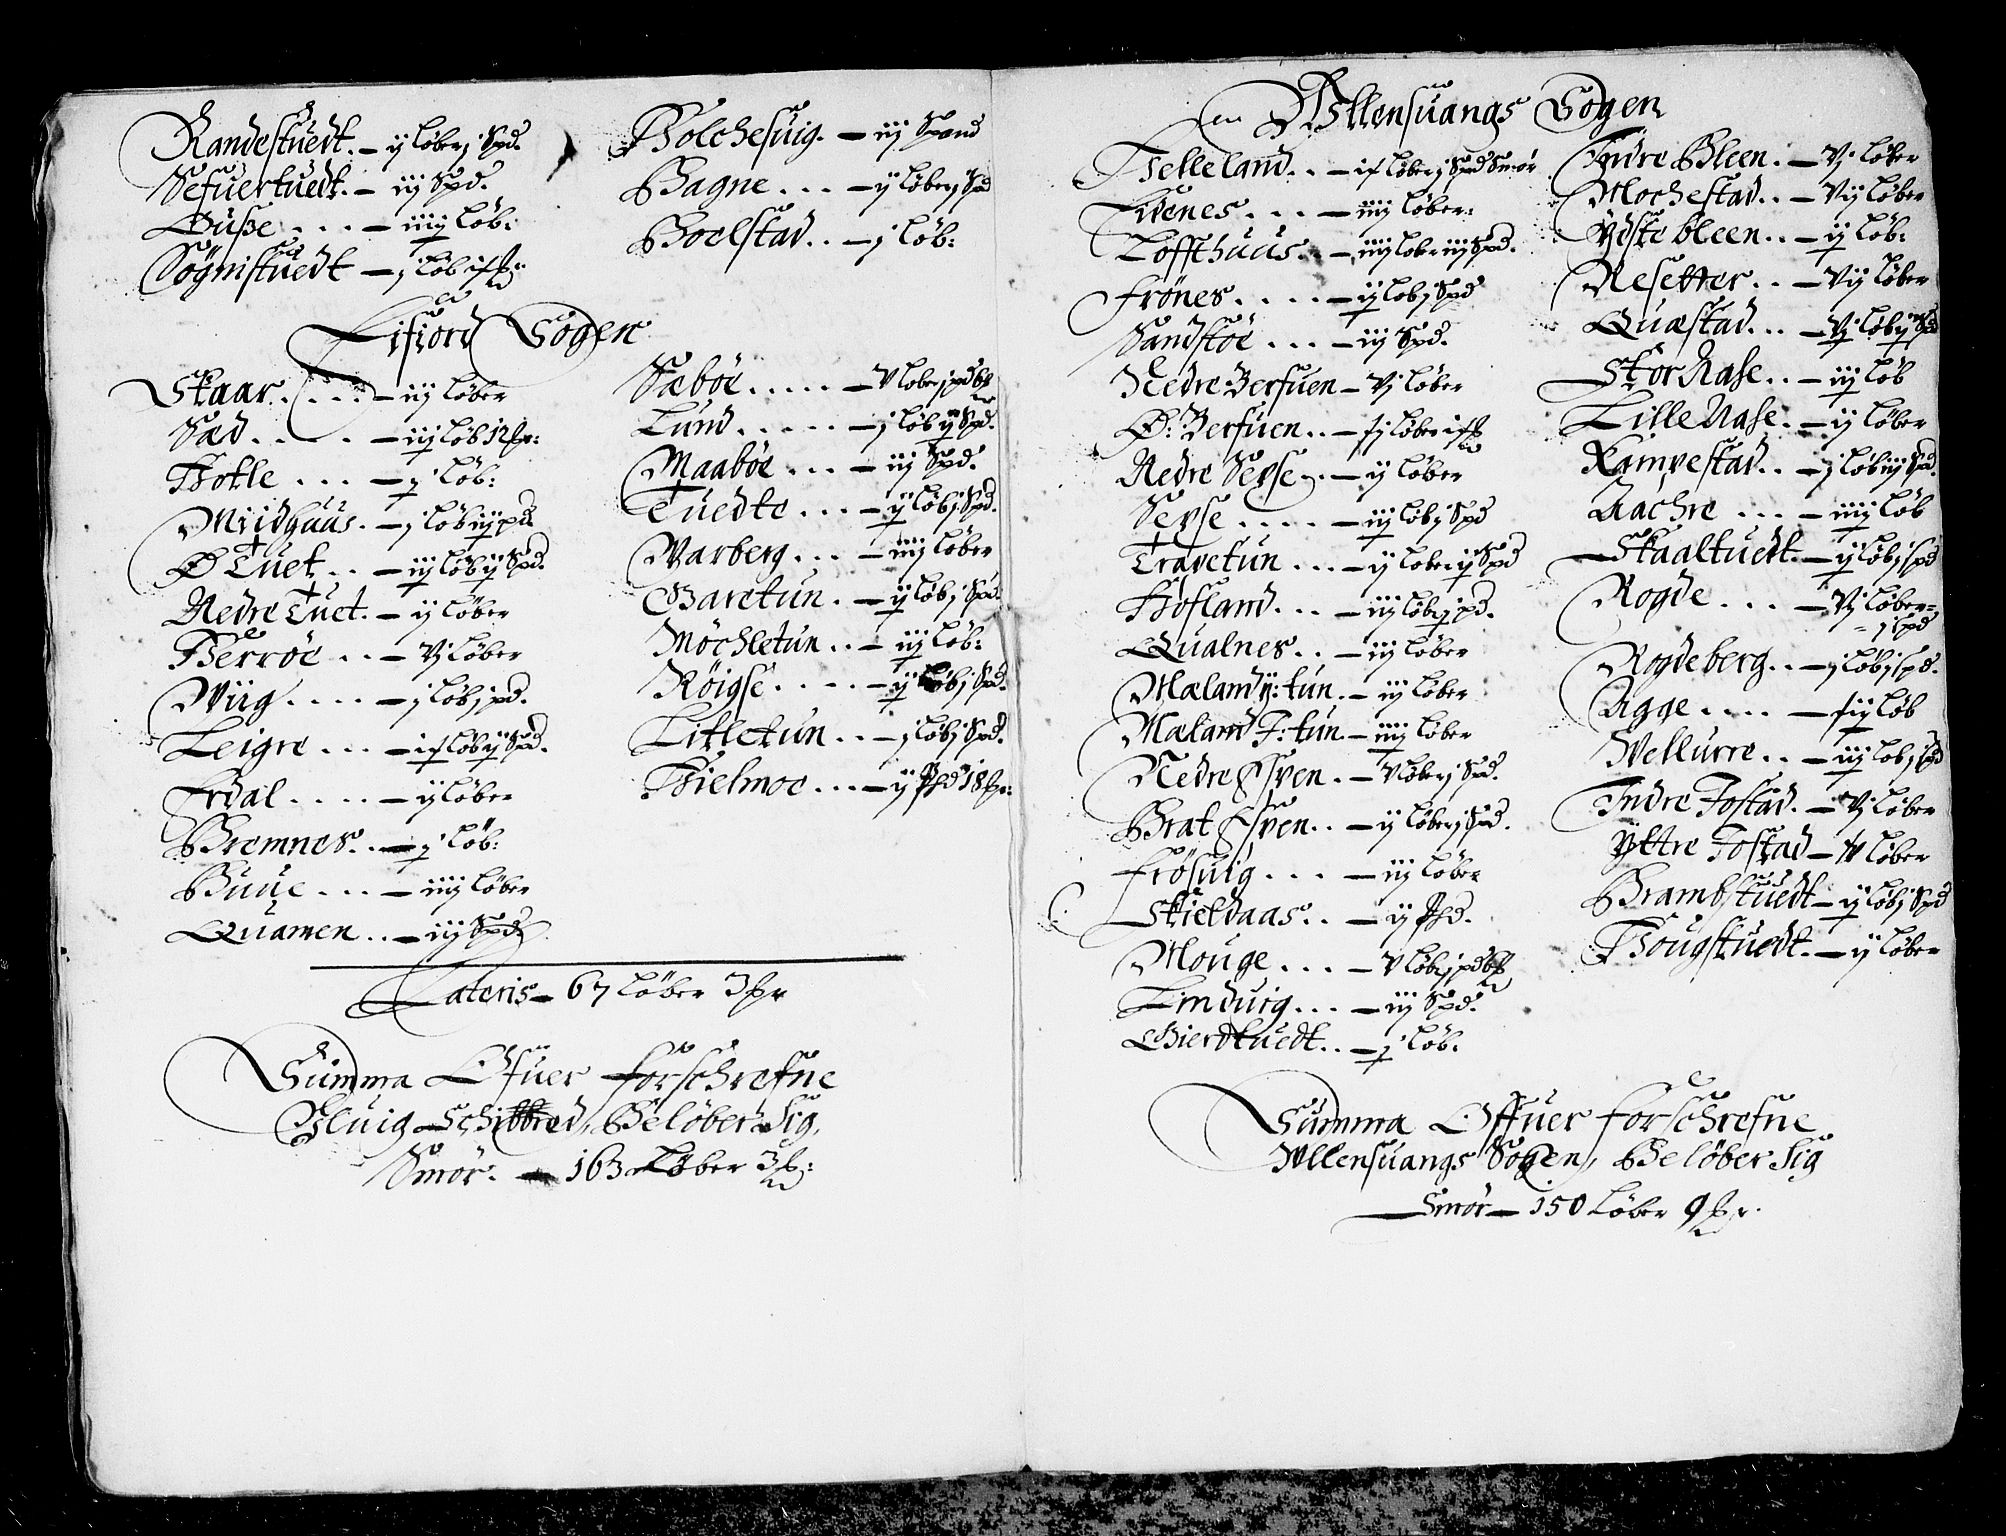 Randestuedt. – ij løber j Spd.
Sefuertuedt. – iij Spd.
Busse . . . – iiij løb:
Sögnistuedt – j løb
Holchesuig. – iij Spand
Hagne . . . – ij løber j Spd
Hoelstad . . – j løb:
Eifiord Sogen
Skaar . . . . – iij løber
Sæd . . . . – iij løb 12 pr:
Hotle . . . – j løb:
Miidhuus. – j løb iij pd.
Ø Tuet . . – iij løb ij Spd.
Nedre Tuet. – ij løber
Herröe . . – Vj løber
Wiig . . . . – j løb j pd.
Leigre . . . – løb ij Spd.
Erdal . . . . – ij løber
Bremnes. . – j løb:
Huue . . . – iiij løber
Quamen . . – iij Spd.
Sæbøe . . . . . – V løber j pd
Lund . . . . . – j løb ij Spd.
Maabøe . . . – iij Spd.
Tuedte . . . – ij løb j Spd.
Warberg . . . – iiij løber
Garetun . – ij løb j Spd.
Möchletun . . – iij løb:
Röigse . . . . – ij løb j Spd.
Litletun . . – j løb j Spd.
Hielmoe . . . – ij Spd 18 pr:
Lateris – 67 løber 3 pr
Summa Ofuer forschrefne
Eluig Schibbred, Beløber Sig,
Smör. – 163 Løber 3
Wllensuangs Sogen
Helleland . . – løber j Spd Smör
Eidnes . . . – iiij løber:
Loffthuus. . – iiij løber iij Spd.
Frönes . . . . – ij løb j Spd
Sandstöe . . . – iij Spd.
Nedre Berfuen – Vj løber
Ø: Berfuen . . – løber
Nedre Sexse . . – ij løber
Sexse . . . . – iij løb j Spd
Trapetun . . . – ij løber ij Spd
Hofland . . . – iij løb j pd.
Qualnes . . – iij løber
Mæland y: tun. – iij løber
Mæland J: tun – iiij løber
Nedre Espen . – V løber j Spd.
Brat Espen . . – ij løber j Spd.
Frösuig . . . – iij løber
Skieldaas . . – ij Spd.
Mouge . . . – V løb j pd
Tinduig . . . – iij Spd.
Giertuedt . . – j løb:
Indre Bleen . – Vj løber
Mochestad . . – Vij løber
Ydste bleen . . – ij løb:
Nesetter . . – Vij løber
Quæstad . . . – Vj løb ij Spd
Stor Nase . . – iij løb
Lille Nase . – ij løber
Kampestad . . – j løb iij Spd.
Aachre . . . – iiij løb
Skaaltuedt – ij løb j spd
Rogde . . . – Vj løber =
= j spd
Rogdeberg . . – j løb j spd.
Agge . . . . – løb
Wellurre . . – iij løb j spd
Indre Jostad. – Vj løber
Yttre Jostad – løber
Brambstuedt – ij løb j Spd
Hougstuedt. – ij løber
Summa Offuer forschrefne
Wllensuangs Sogen, Beløber Sig
Smör – 150 Løber 9 pr.